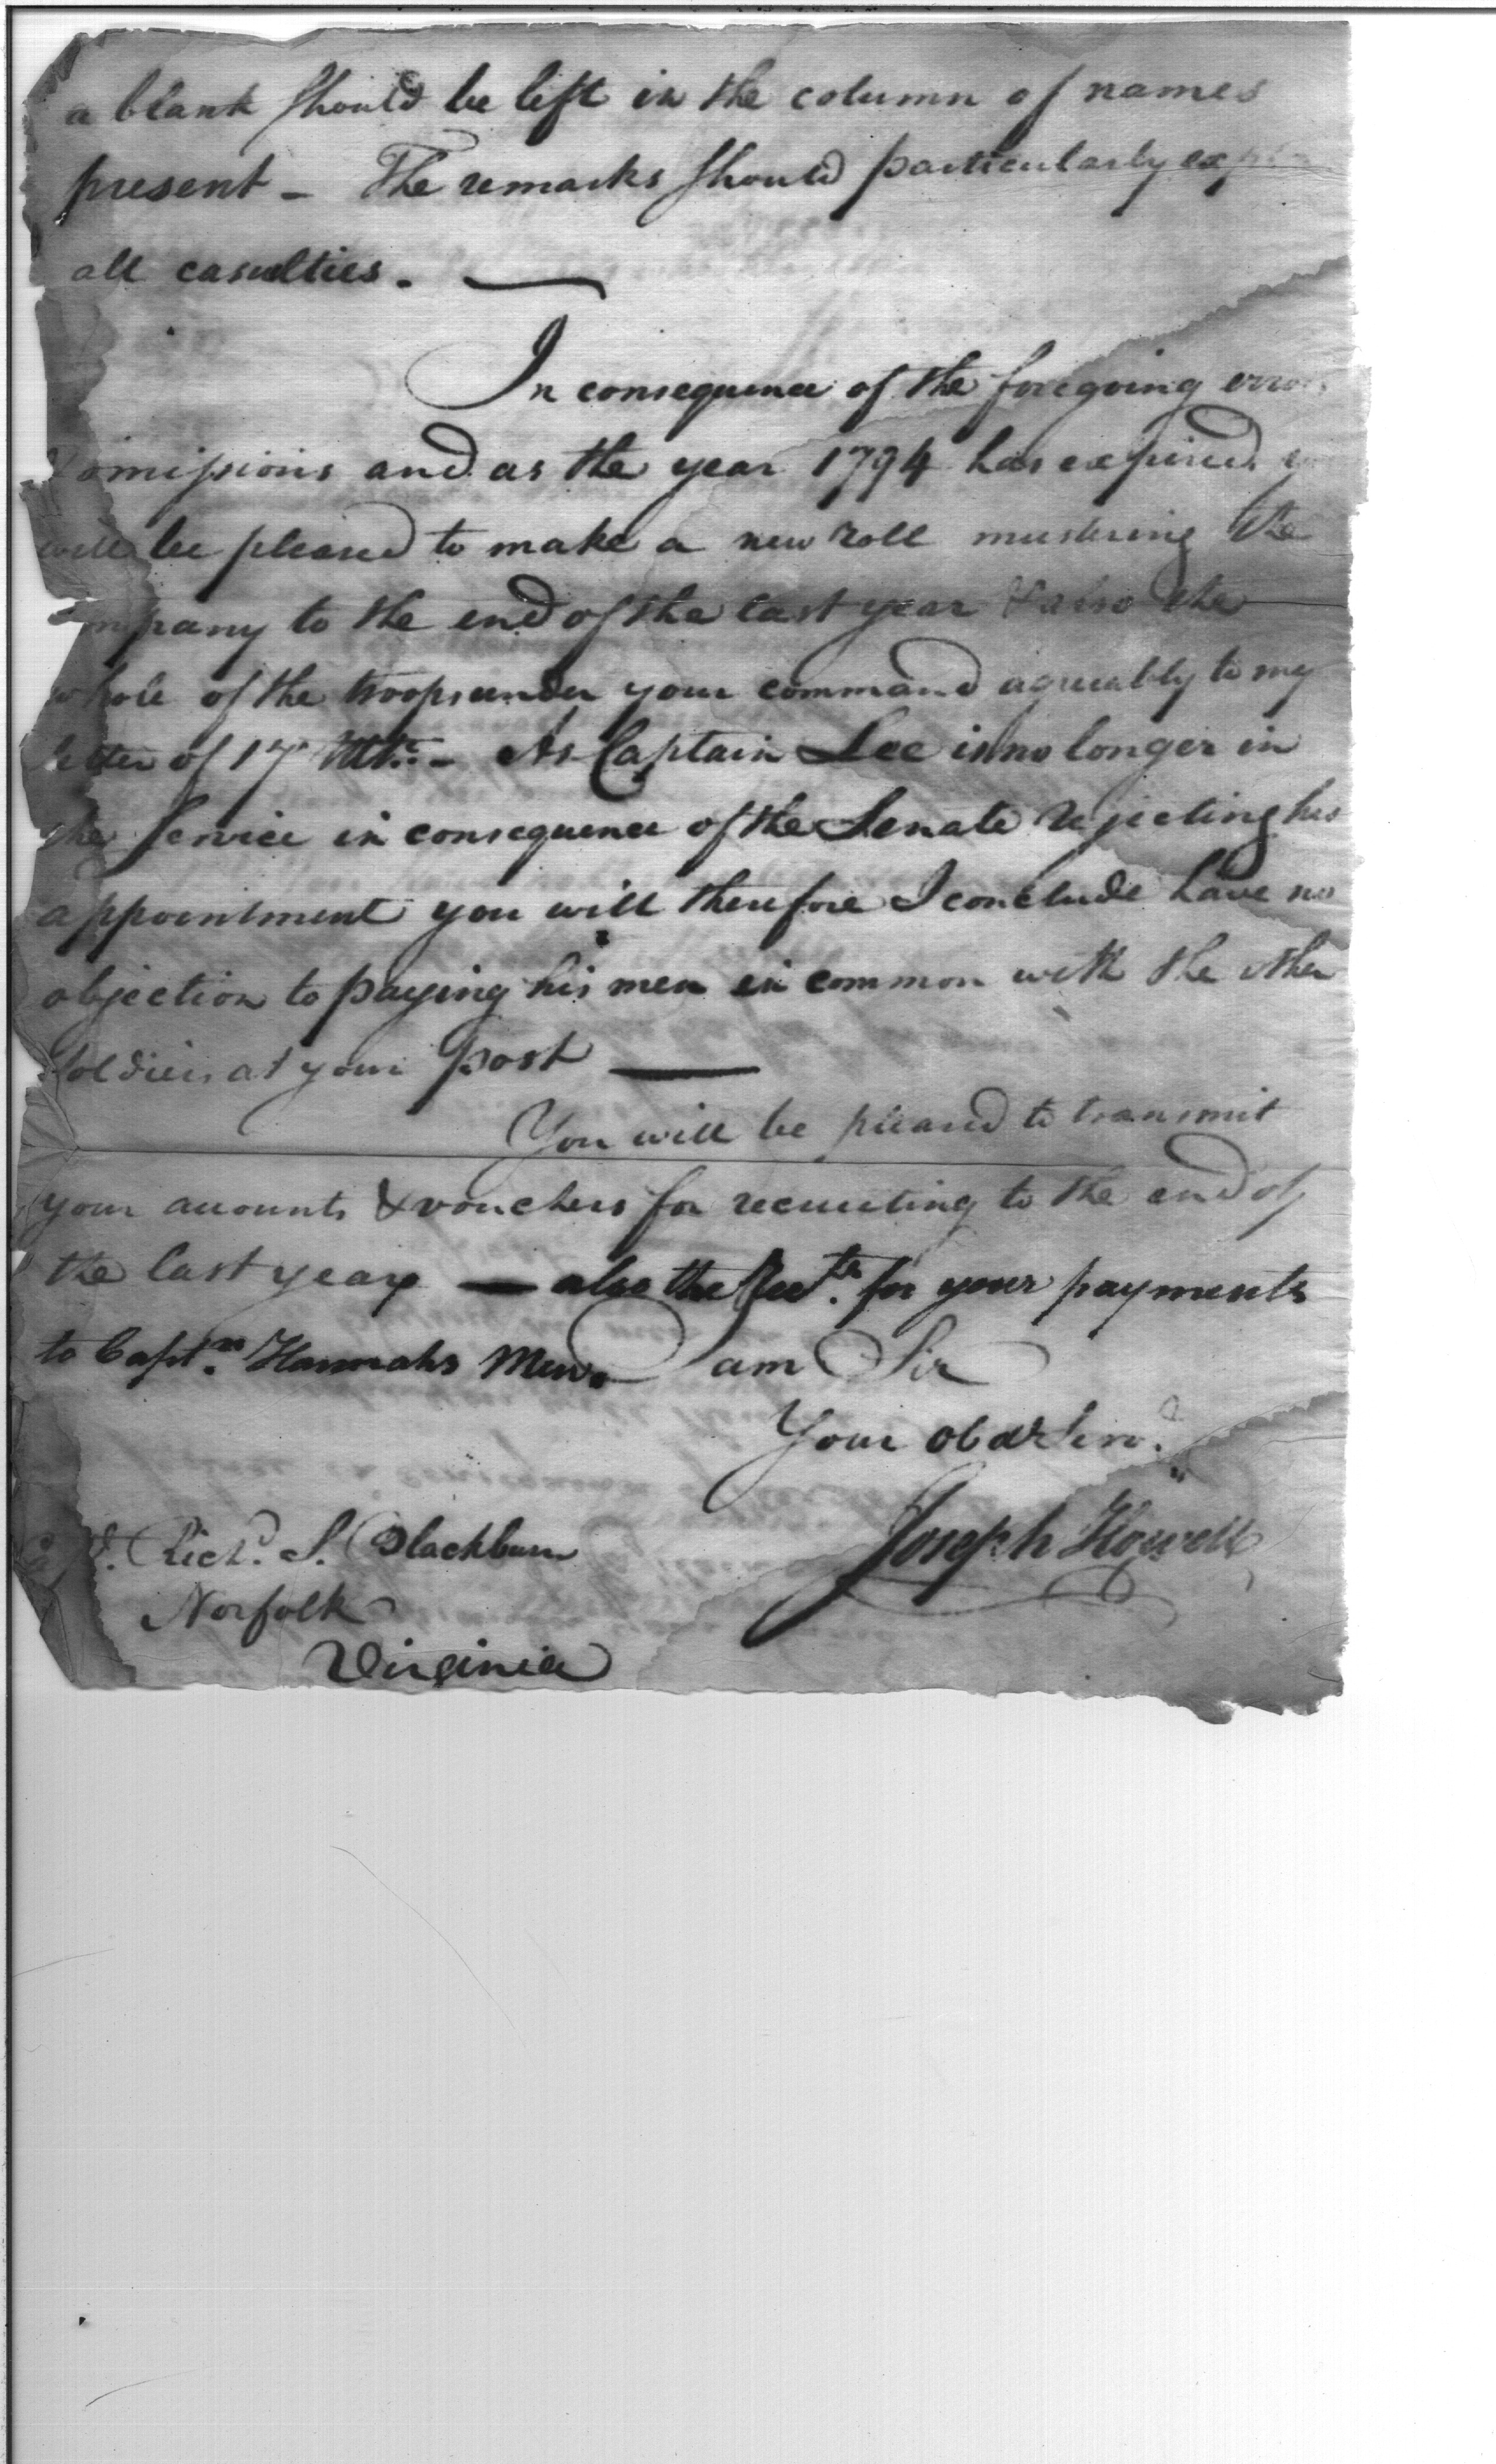 a blank should be left in the column of names
present - The remarks should particularly
all casualties. —
In consequence of the foregoing
omissions and as the year 1794 has expired
will be pleased to make a new roll mustering the
to the end of the last year & also the
whole of the troops under your command agreeably to my
letter of 17 Ult.o - As Captain Lee is no longer in
the service in consequence of the Senate rejecting his
appointment you will therefore I conclude have no
objection to paying his men in common with the other
soldiers at your post —
You will be pleased to transmit
your accounts & vouchers for recruiting to the end of
the last year — also the Rec.ts for your payments
to Capt.n Hannahs Men. I am Sir
Your Obdt Serv.
Joseph Howell
Rich.d S. Blackburn
Norfolk
Virginia